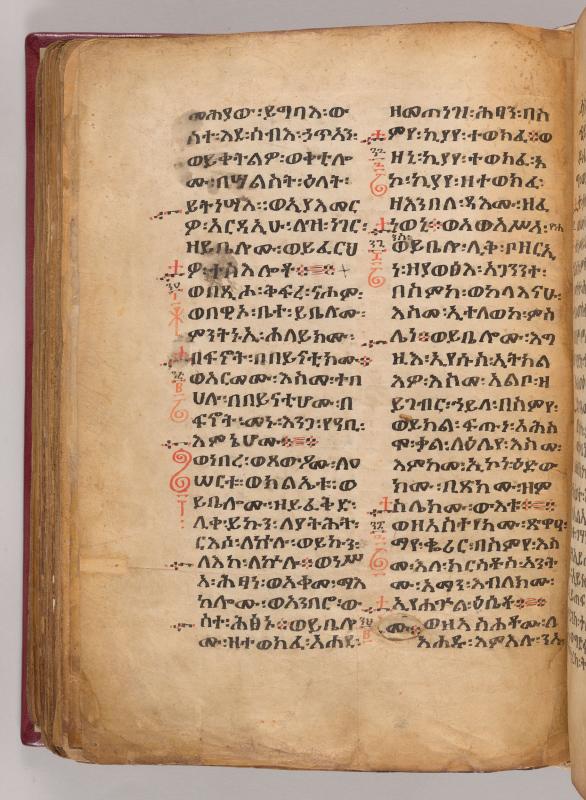 መሕያው፡ይግባእ፡ው
ስተ፡እደ፡ሰብእ፡ኃጥኣን፡
ወይቀትልዎ፡ወቀቲሎ
ሙ፡በሣልስት፡ዕለት፡
ይትነሣእ፡፡ወኢያእመር
ዎ፡አርዳኢሁ፡ለዝ፡ነገር፡
ዘይቤሎሙ፡ወይፈርህ
ዎ፡ተስእሎቶ፡፡
ወበጺሖ፡ቅፍረ፡ናሆም፡
ወበዊኦ፡ቤተ፡ይቤሎሙ፡
ምንትኑ፡ሐለይክሙ፡
በፍኖት፡በበይናቲክሙ፡፡
ወአርመሙ፡እስመ፡ተበ
ሀሉ፡በበይናቲሆሙ፡በ
ፍኖት፡መኑ፡እንጋ፡የዓቢ፡
እምኔሆሙ፡፡
ወነበረ፡ወጸውዖሙ፡ለዐ
ሠርቱ፡ወክልኤቱ፡ወ
ይቤሎሙ፡ዘይፈቅድ፡
ሊቀ፡ይኩን፡ለያትሕት፡
ርእሶ፡ለኵሉ፡ወይኩን፡
ለአከ፡ለኵሉ፡፡ወነሥ
አ፡ሕፃነ፡ወአቀሙ፡ማእ
ከሎሙ፡ወአንበሮ፡ው
ስተ፡ሕፅኑ፡፡ወይቤሎ
ሙ፡ዘተወክፈ፡አሐደ፡
ዘመጠነዝ፡ሕፃን፡በስ
ምየ፡ኪያየ፡ተወክፈ፡፡ወ
ዘኒ፡ኪያየ፡ተወክፈ፡አ
ኮ፡ኪያየ፡ዘተወክፈ፡
ዘእንበለ፡ዳእሙ፡ዘፈ
ነወኒ፡፡ወአውሥአ፡ዮሐንስ፡
ወይቤሎ፡ሊቅ፡ቦዘርኢ
ነ፡ዘያወፅእ፡አጋንንተ፡
በስምከ፡ወከላእናሁ፡
እስመ፡ኢተለወከ፡ምስ
ሌነ፡፡ወይቤሎሙ፡እግ
ዚእ፡ኢየሱስ፡ኢትክል
እዎ፡እስመ፡አልቦ፡ዘ
ይገብር፡ኀይለ፡በስምየ፡
ወይክል፡ፍጡነ፡አሕስ
ሞ፡ቃል፡ላዕሌየ፡እስመ፡
እምከመ፡ኢኮነ፡ዕድው
ክሙ፡ቢጽክሙ፡ዝም
ስሌክሙ፡ውእቱ፡፡
ወዘአስተየክሙ፡ጽዋዐ፡
ማየ፡ቈሪር፡በስምየ፡እስ
መ፡እለ፡ክርስቶስ፡አንት
ሙ፡አማን፡እብለክሙ፡
ኢየሐጕል፡ዕሴቶ፡፡
ወዘአስሐቶሙ፡ለ
አሐዱ፡እምእሉ፡ንኡ